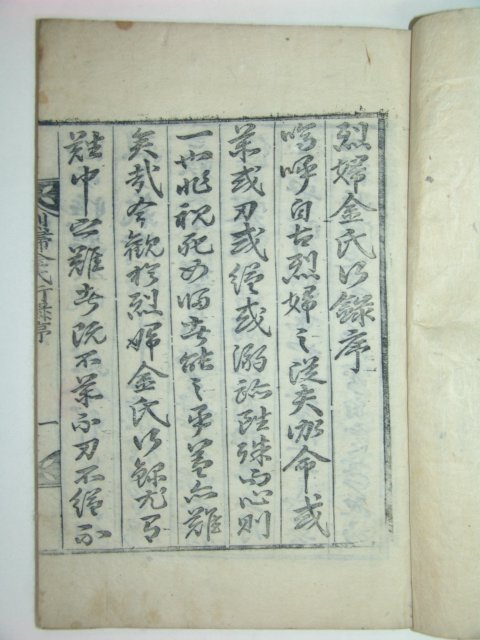 烈婦金氏行錄序
嗚呼自古烈婦之從夫殉命或
藥或刃或縊或溺跡雖殊而心則
一也非視死如歸者能之乎盖亦難
矣哉今觀於烈婦金氏行錄尤有
難中之難者既不藥不刃不縊不
烈婦金氏行錄序 一